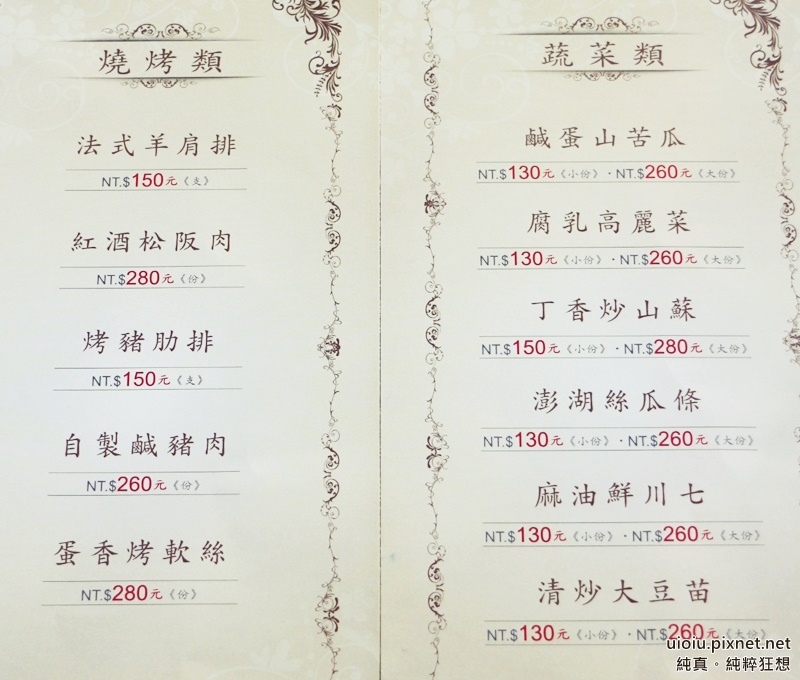 燒烤類
法式羊肩排
NT.$150元《支》
紅酒松阪肉
NT.$280元《份》
烤豬肋排
NT.$150元《支》
自製鹹豬肉
NT.$260元《份》
蛋香烤軟絲
NT.$280元《份》
蔬菜類
鹹蛋山苦瓜
NT.$130元《小份》・NT.$260元《大份》
腐乳高麗菜
NT.$130元《小份》・NT.$260元《大份》
丁香炒山蘇
NT.$150元《小份》・NT.$280元《大份》
澎湖絲瓜條
NT.$130元《小份》・NT.$260元《大份》
麻油鮮川七
NT.$130元《小份》・NT.$260元《大份》
清炒大豆苗
NT.$130元《小份》・NT.$260元《大份》
uioiu.pixnet.net
純真。純粹狂想